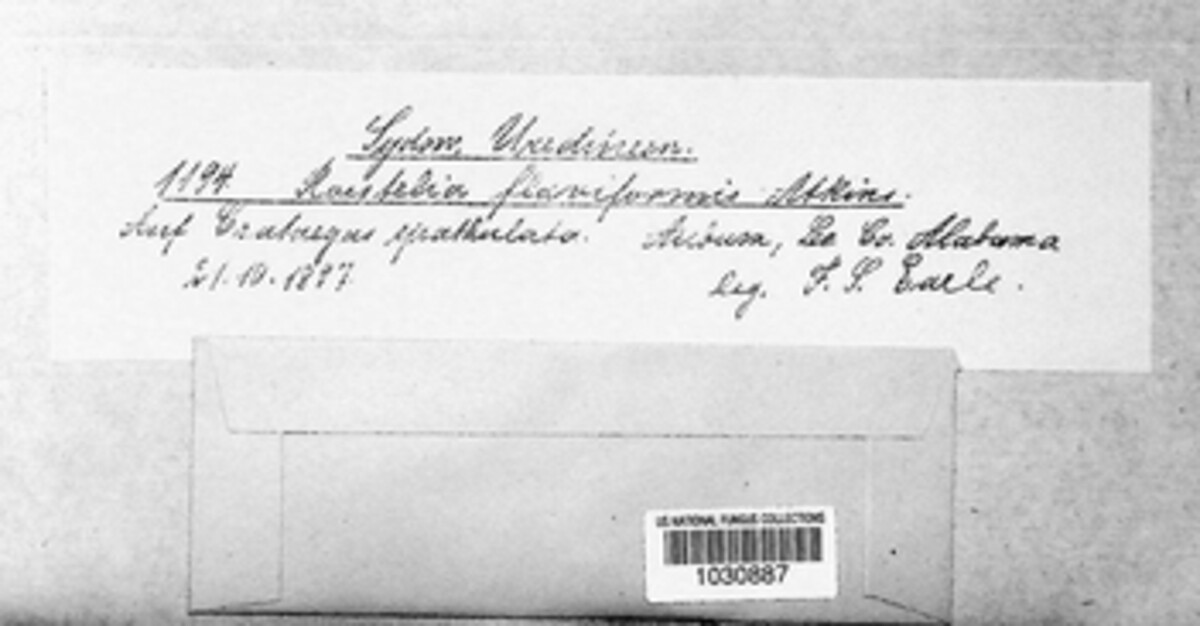 Sydow, Uredineen.
1194. Roestelia flaviformis Atkins.
Auf Crataegus spathulata. Auburn, Lee Co. Alabama
21.10.1897. leg. F. S. Earle.
US NATIONAL FUNGUS COLLECTIONS
1030887